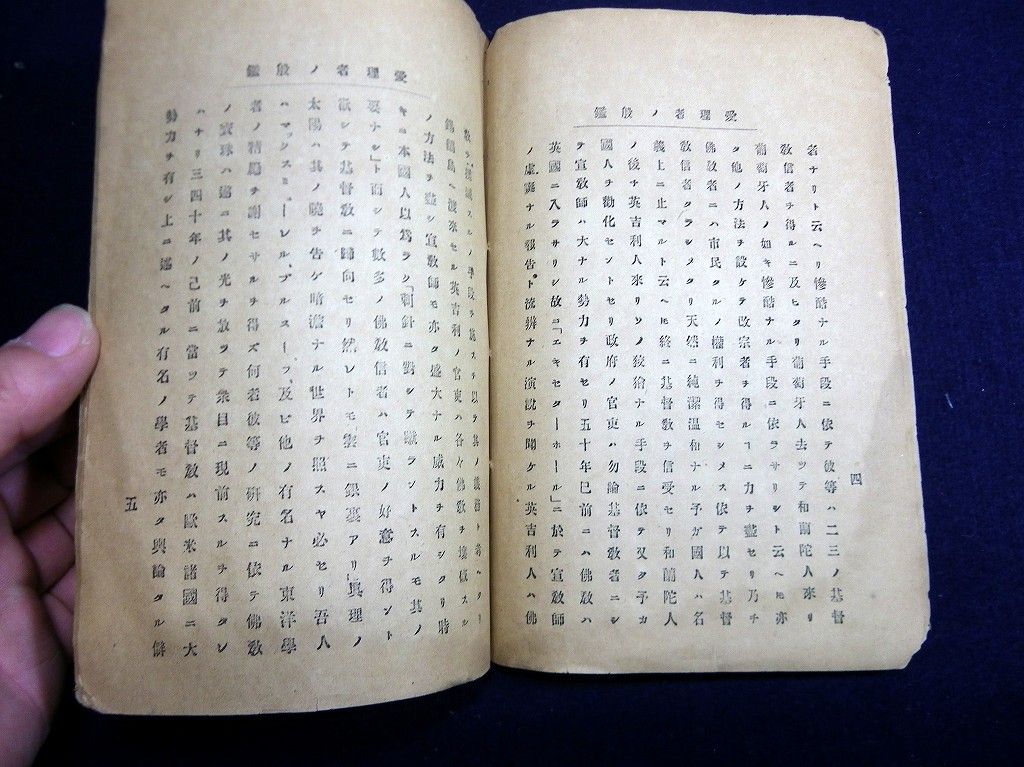 愛理者ノ般鑑
者ナリト云ヘリ慘酷ナル手段ニ依テ彼等ハ二三ノ基督
敎信者チ得ルニ及ヒタリ葡萄牙人去ツテ和蘭陀人來リ
葡萄牙人ノ如キ慘酷ナル手段ニ依ラサリシト云ヘヒ亦
タ他ノ方法チ設ケテ改宗者チ得ルヿニ力チ盡セリ乃チ
佛敎者ニハ市民タルノ權利チ得セシメス依テ以テ基督
敎信者タラシメタリ天然ニ純潔温和ナル予ガ國人ハ名
義上ニ止マルト云ヘヒ終ニ基督敎チ信受セリ和蘭陀人
ノ後チ英吉利人來リソノ狡猾ナル手段ニ依テ又タ予カ
國人チ勸化セントセリ政府ノ官吏ハ勿論基督敎者ニシ
テ宣敎師ハ大ナル勢力チ有セリ五十年已前ニハ佛敎ハ
英國ニ入ラサリシ故ニ「エキセターホール」ニ於テ宣敎師
ノ虚誕ナル報告ト流辨ナル演説チ聞ケル英吉利人ハ佛
四
愛理者ノ般鑑
敎チ撲滅スルノ手段チ施スチ以テ其ノ義務ト爲ヘリ
錫倫島ヘ渡來セル英吉利ノ官吏ハ各々佛敎チ壞破スル
ノ方法チ盡シ宣敎師モ亦タ盛大ナル威力チ有シタリ時
キニ本國人以爲ラク「刺針ニ對シテ蹴ラントスルモ其ノ
要ナシ」ト而シテ數多ノ佛敎信者ハ官吏ノ好意チ得ント
欲シテ基督敎ニ歸向セリ然レトモ雲ニ銀裏アリ「眞理ノ
太陽ハ其ノ曉チ告ケ暗澹ナル世界チ照スヤ必セリ吾人
ハマツンスミーレル、ブルスーフ、及ヒ他ノ有名ナル東洋學
者ノ精勵チ謝セサルチ得ズ何者彼等ノ硏究ニ依テ佛敎
ノ寶珠ハ遂ニ其ノ光チ放ツテ衆目ニ現前スルチ得タレ
ハナリ三四十年ノ已前ニ當ツテ基督敎ハ歐米諸國ニ大
勢力チ有シ上ニ述ヘタル有名ノ學者モ亦タ輿論タル僻
五